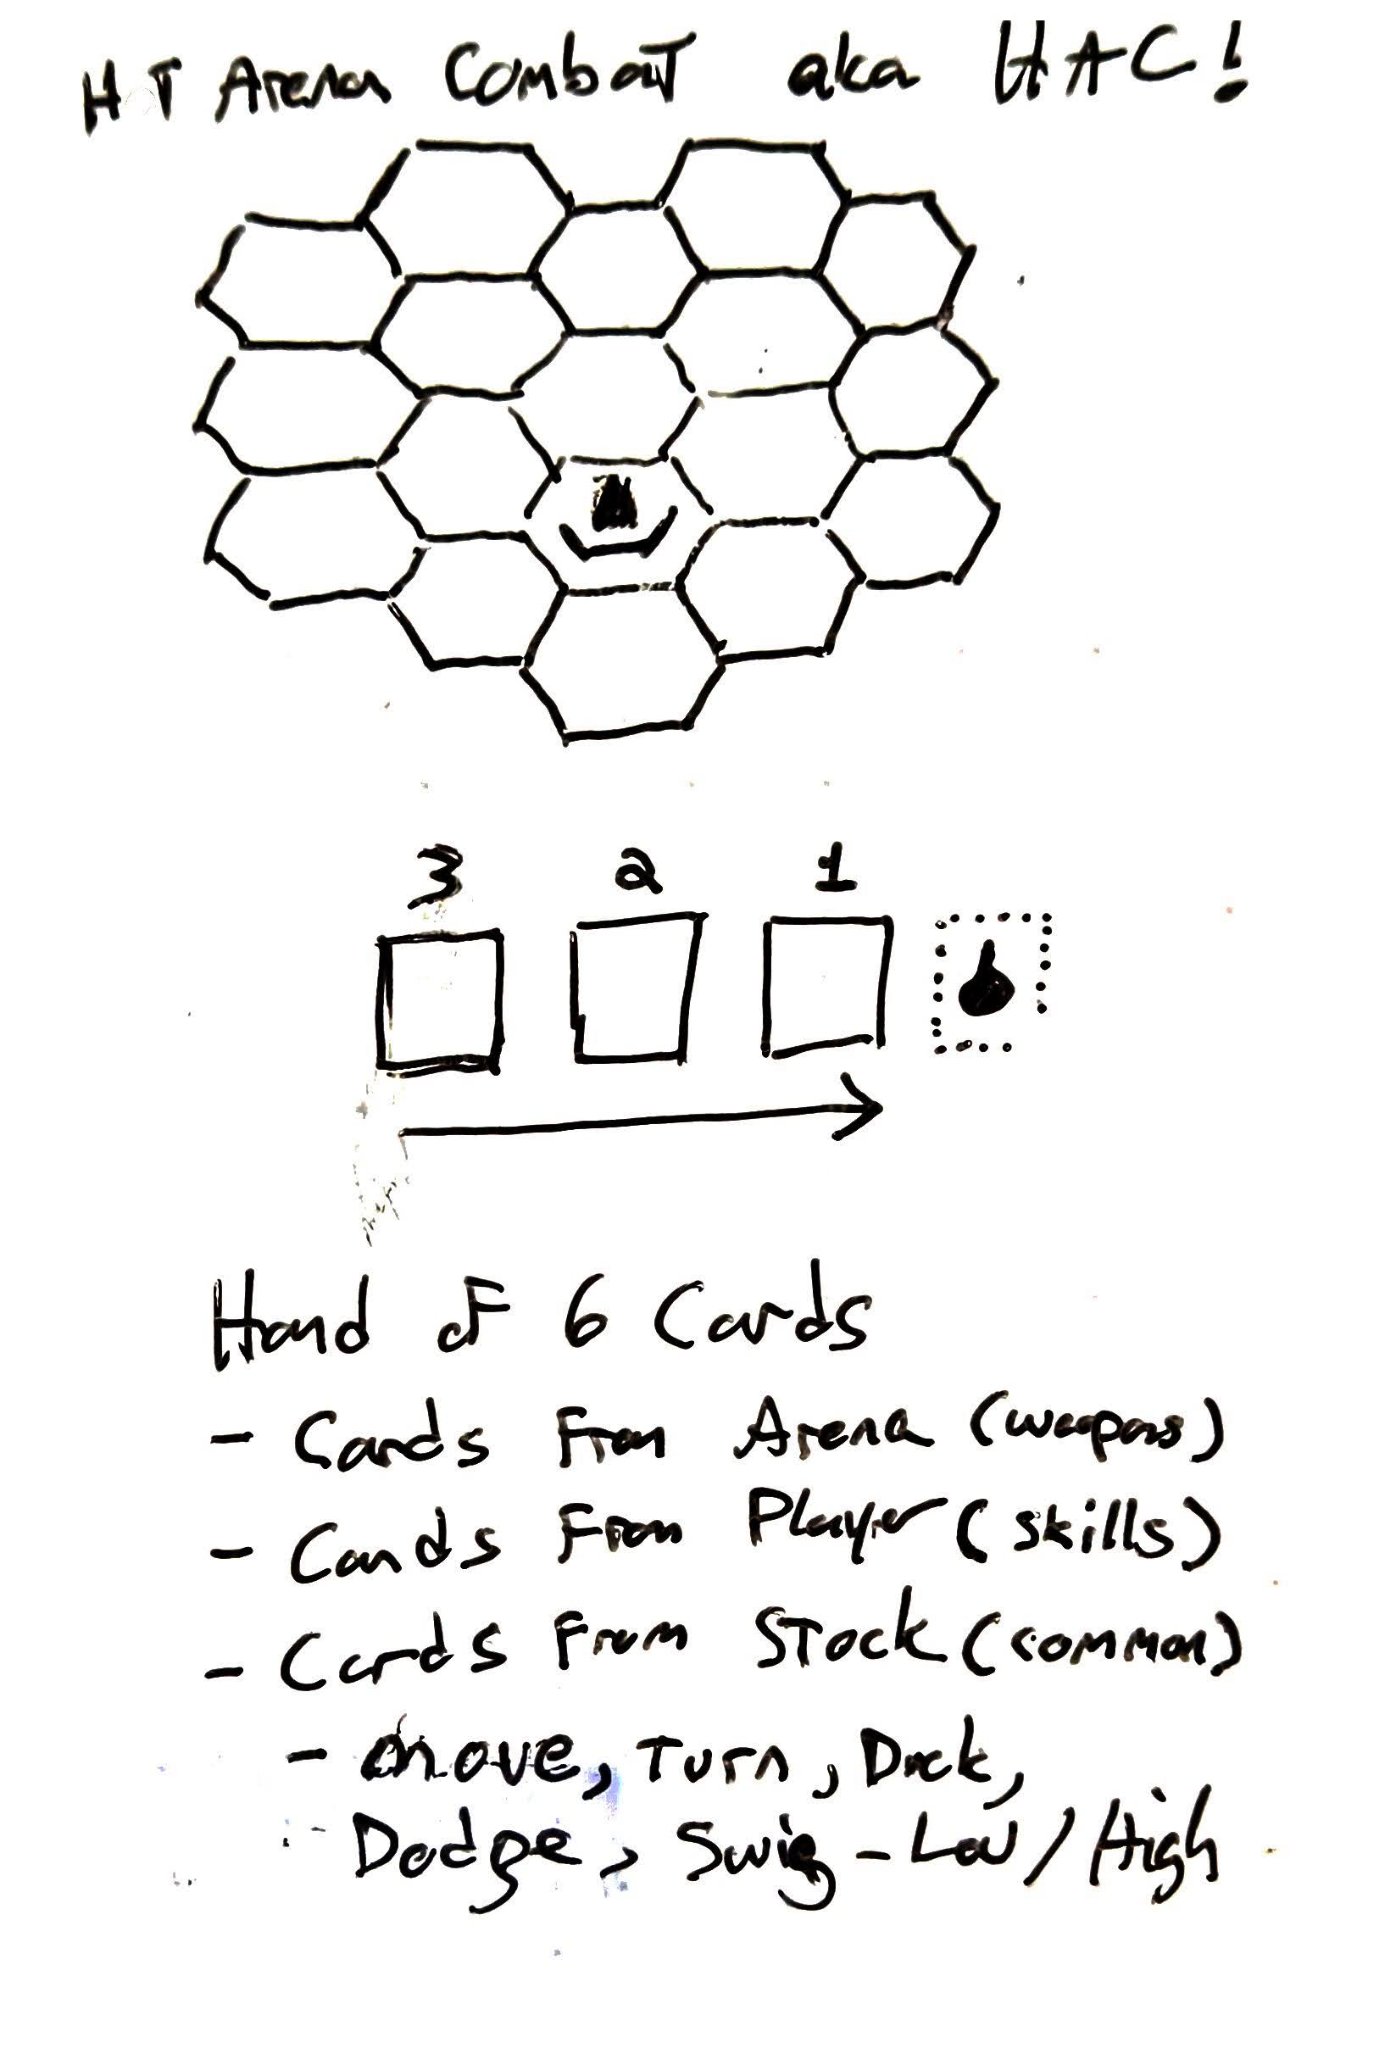 HT Arena Combat aka HAC!
3 2 1
Hand of 6 Cards
- Cards From Arena (weapons)
- Cards From Player (skills)
- Cards From Stock (common)
- move, Turn, Duck,
Dodge, Swig - Low / High